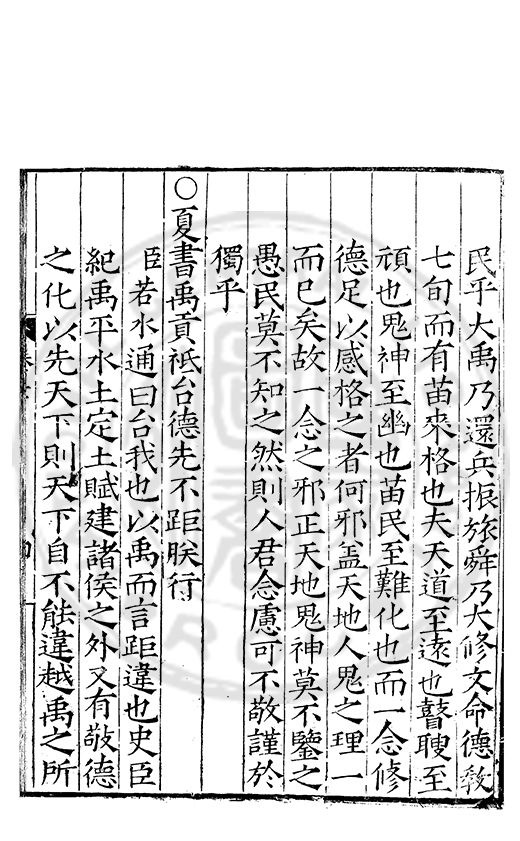 民乎大禹乃還兵振旅舜乃大修文命德敎
七旬而有苗來格也夫天道至遠也瞽瞍至
頑也鬼神至幽也苗民至難化也而一念修
德足以感格之者何邪盖天地人鬼之理一
而已矣故一念之邪正天地鬼神莫不鑒之
愚民莫不知之然則人君念慮可不敬謹於
獨乎
○夏書禹貢祗台德先不距朕行
臣若水通曰台我也以禹而言距違也史臣
紀禹平水土定土賦建諸侯之外又有敬德
之化以先天下則天下自不能違越禹之所